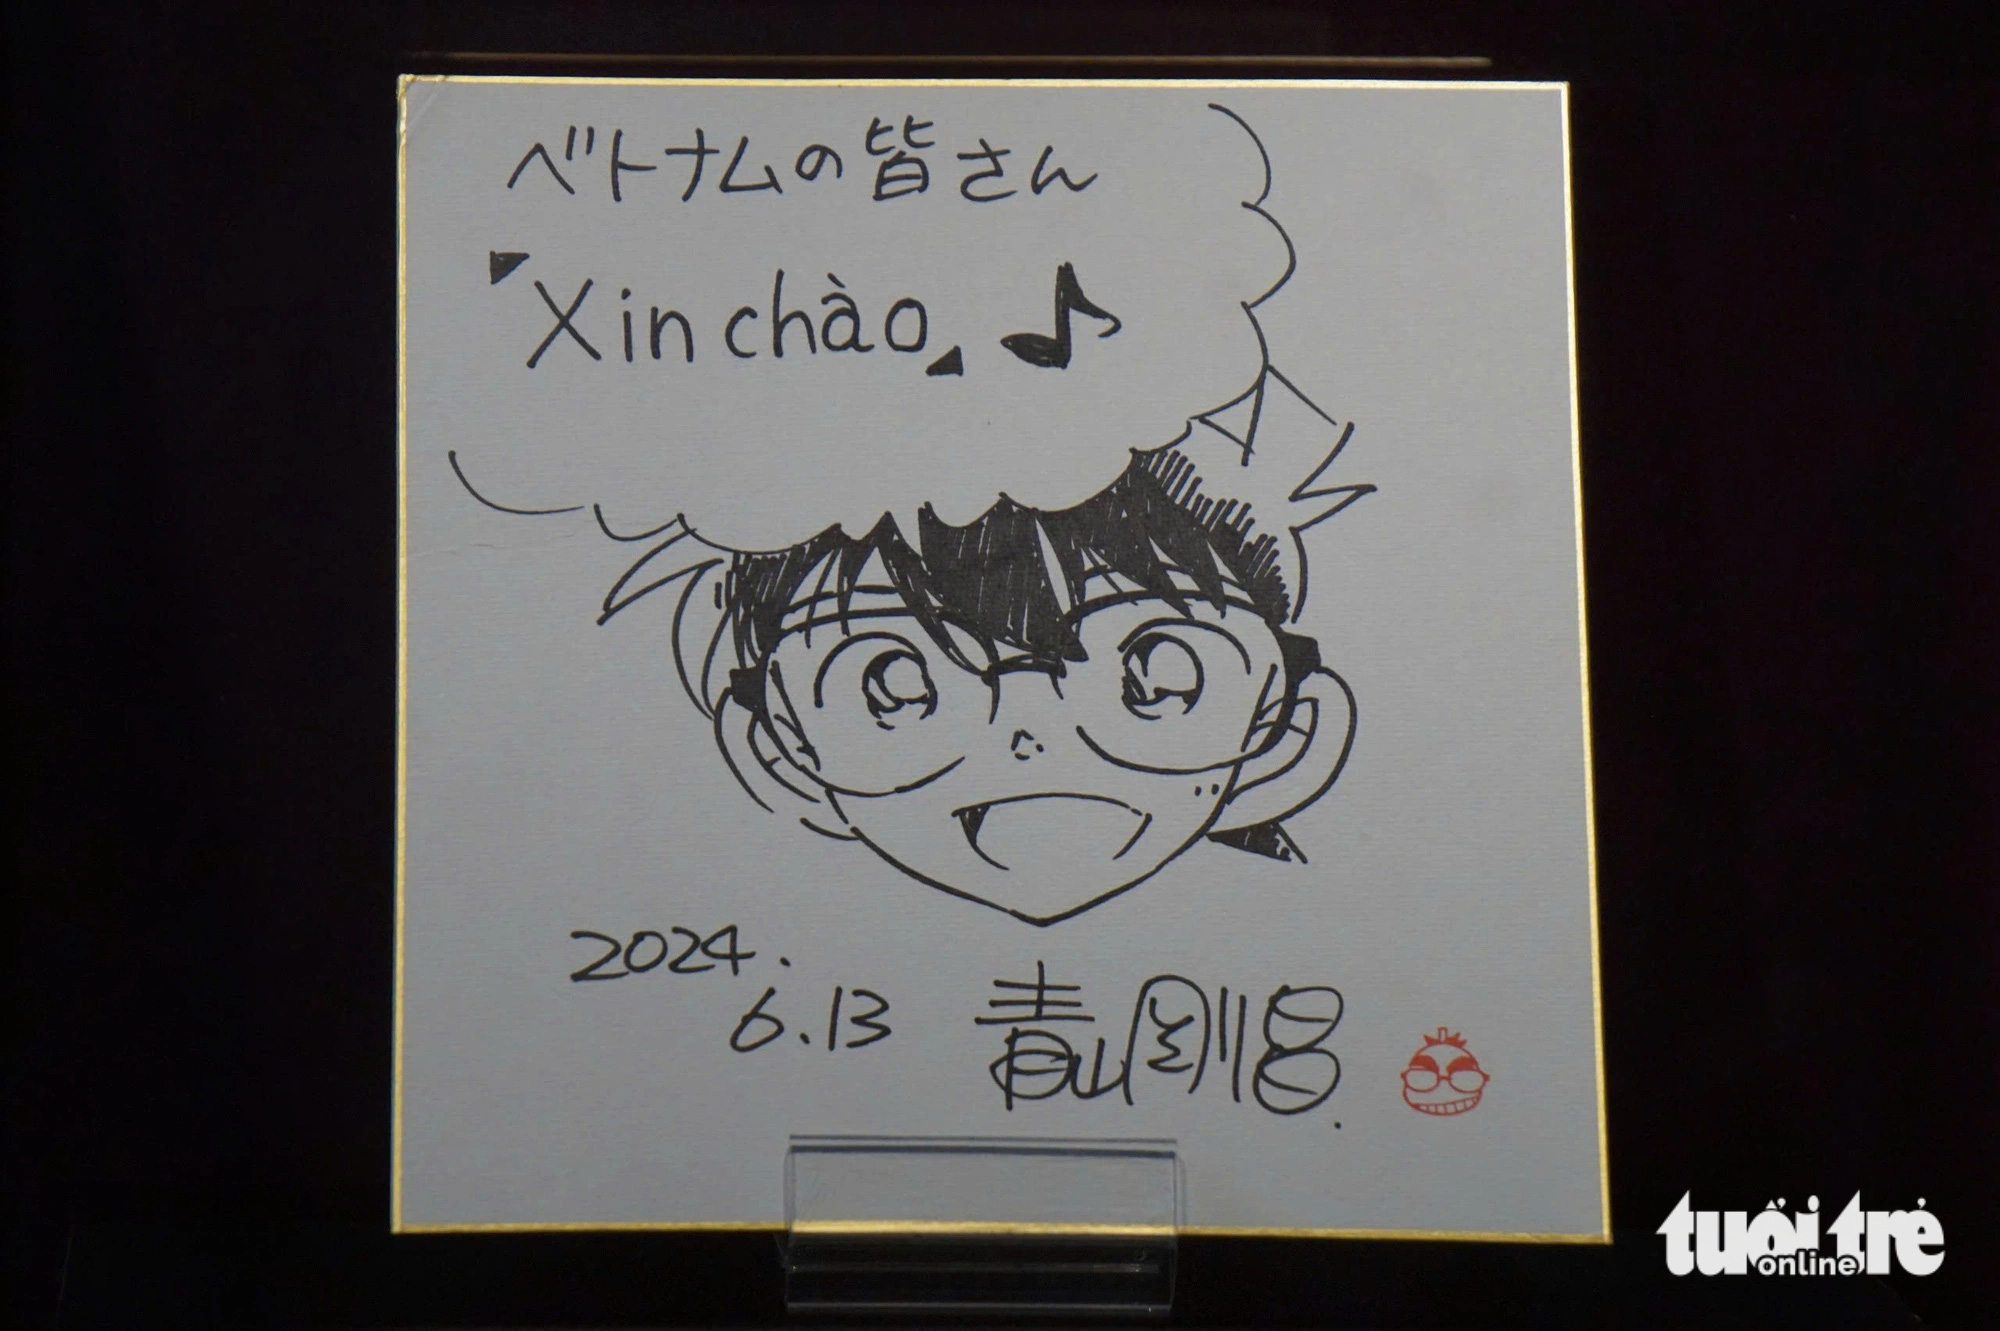 ベトナムの皆さん
〝Xin chào〟♪
2024.
6.13
青山剛昌
tuổi trẻ
online